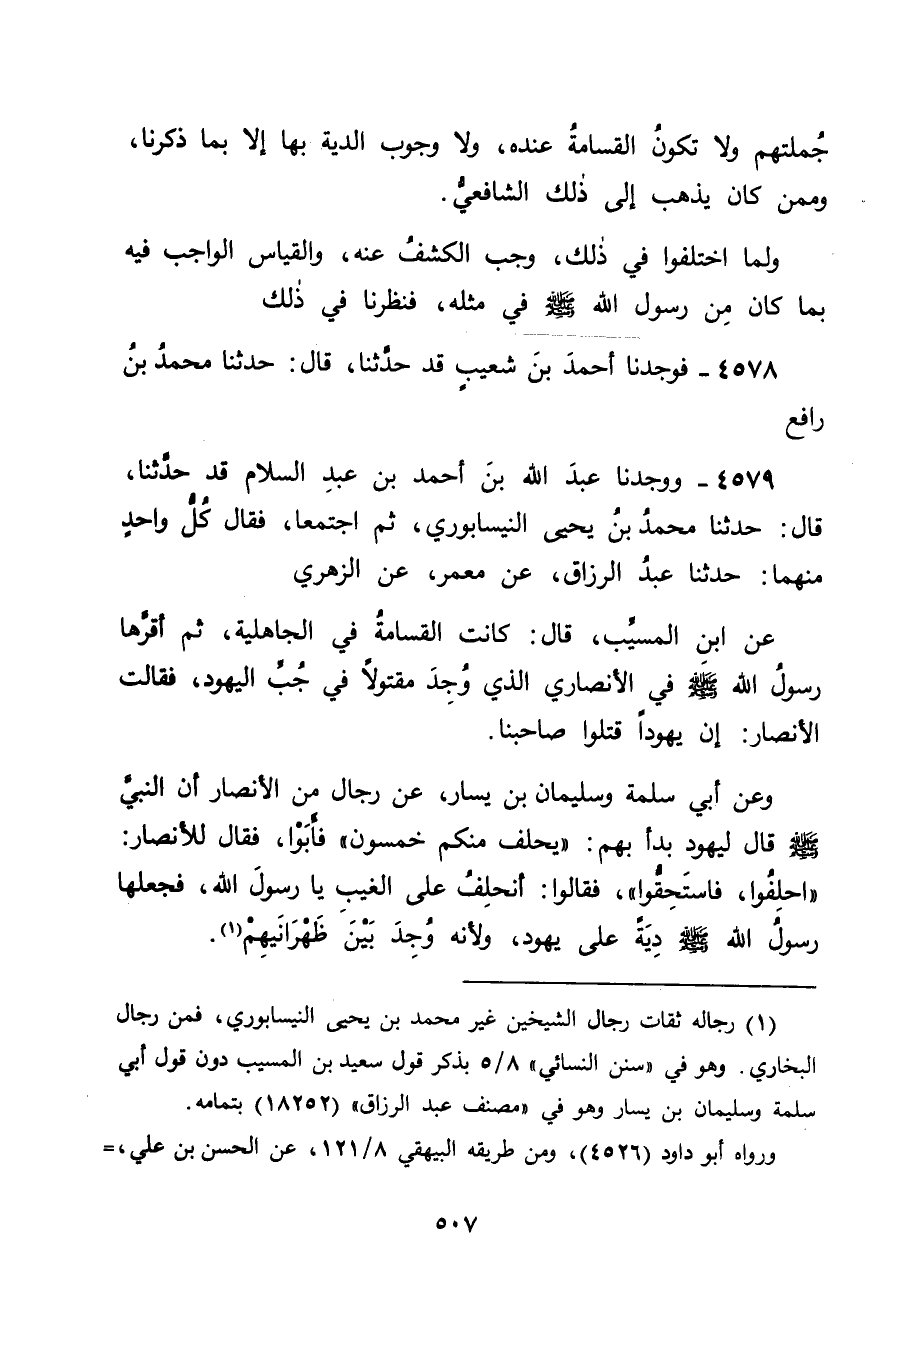 جُملتهم ولا تكونُ القسامةُ عنده، ولا وجوب الدية بها إلا بما ذكرنا،
وممن كان يذهب إلى ذٰلك الشافعيُّ.
ولما اختلفوا في ذٰلك، وجب الكشفُ عنه، والقياس الواجب فيه
بما كان مِن رسول الله ﷺ في مثله، فنظرنا في ذٰلك
٤٥٧٨ ـ فوجدنا أحمدَ بنَ شعيبٍ قد حدَّثنا، قال: حدثنا محمدُ بنُ
رافع
٤٥٧٩ ـ ووجدنا عبدَ الله بنَ أحمد بن عبدِ السلام قد حدَّثنا،
قال: حدثنا محمدُ بنُ يحيى النيسابوري، ثم اجتمعا، فقال كُلُّ واحدٍ
منهما: حدثنا عبدُ الرزاق، عن معمر، عن الزهري
عن ابنِ المسيَّب، قال: كانت القسامةُ في الجاهلية، ثم أقرَّها
رسولُ الله ﷺ في الأنصاري الذي وُجِدَ مقتولاً في جُبِّ اليهود، فقالت
الأنصار: إن يهوداً قتلوا صاحبنا.
وعن أبي سلمة وسليمان بن يسار، عن رجال من الأنصار أن النبيَّ
ﷺ قال ليهود بدأ بهم: «يحلف منكم خمسون» فأَبَوْا، فقال للأنصار:
«احلِفُوا، فاستَحِقُّوا»، فقالوا: أنحلِفُ على الغيبِ يا رسولَ الله، فجعلها
رسولُ الله ﷺ دِيَةً على يهود، ولأنه وُجِدَ بَيْنَ ظَهْرَانَيهِمْ(١).
(١) رجاله ثقات رجال الشيخين غير محمد بن يحيى النيسابوري، فمن رجال
البخاري. وهو في «سنن النسائي» ٥/٨ بذكر قول سعيد بن المسيب دون قول أبي
سلمة وسليمان بن يسار وهو في «مصنف عبد الرزاق» (١٨٢٥٢) بتمامه.
ورواه أبو داود (٤٥٢٦)، ومن طريقه البيهقي ١٢١/٨، عن الحسن بن علي،=
٥٠٧